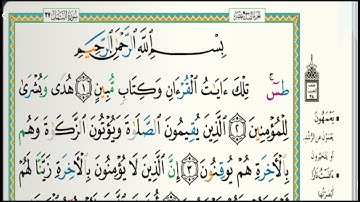 سُورَةُ النَّمْلِ ٢٧
بِسْمِ ٱللَّهِ ٱلرَّحْمَٰنِ ٱلرَّحِيمِ
طسٓ ۚ تِلْكَ ءَايَٰتُ ٱلْقُرْءَانِ وَكِتَابٍ مُّبِينٍ ١ هُدًى وَبُشْرَىٰ
لِلْمُؤْمِنِينَ ٢ ٱلَّذِينَ يُقِيمُونَ ٱلصَّلَوٰةَ وَيُؤْتُونَ ٱلزَّكَوٰةَ وَهُم
بِٱلْءَاخِرَةِ هُمْ يُوقِنُونَ ٣ إِنَّ ٱلَّذِينَ لَا يُؤْمِنُونَ بِٱلْءَاخِرَةِ زَيَّنَّا لَهُمْ
يَعْمَهُونَ